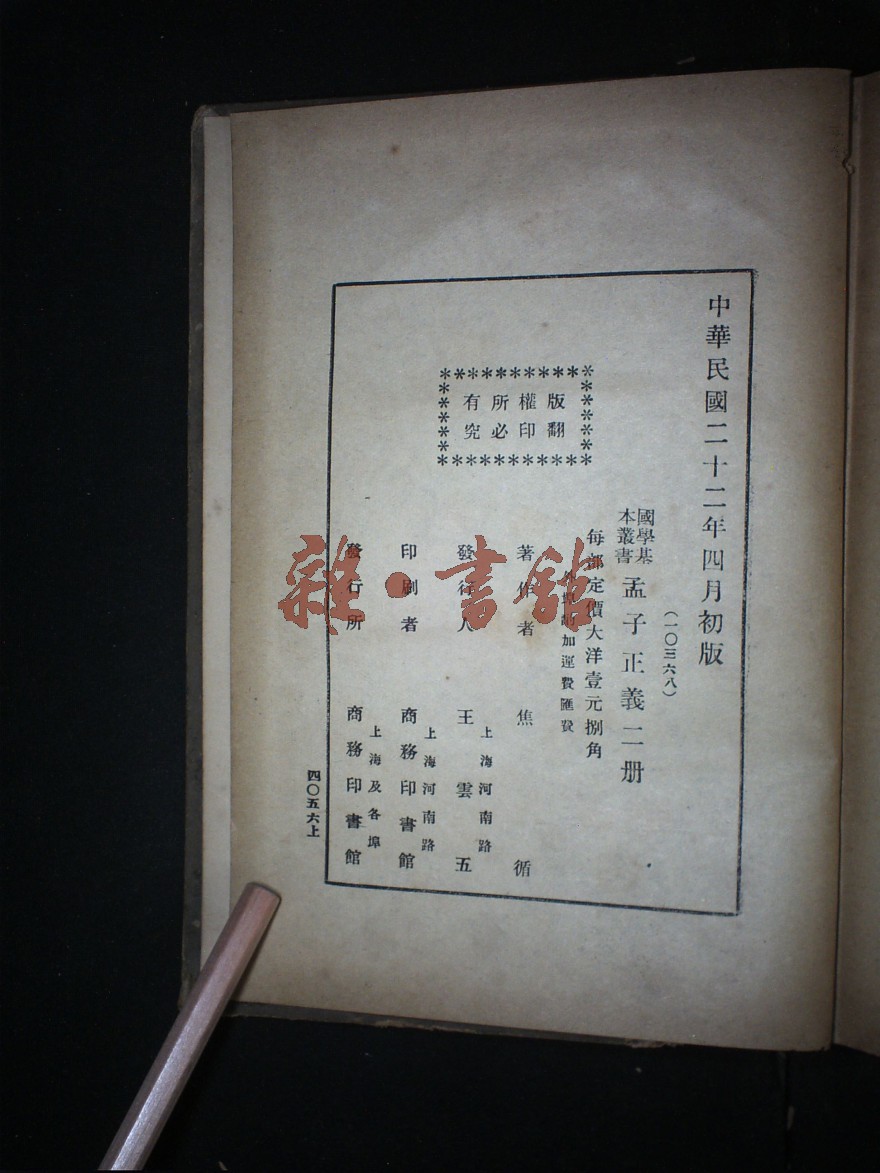 中華民國二十二年四月初版
(一〇三六八)
國學基
本叢書
孟子正義二册
每部定價大洋壹元捌角
加運費匯費
版權所有
翻印必究
著作者 焦循
上海河南路
發行人 王雲五
上海河南路
印刷者 商務印書館
上海及各埠
發行所 商務印書館
四〇五六上
雜·書館